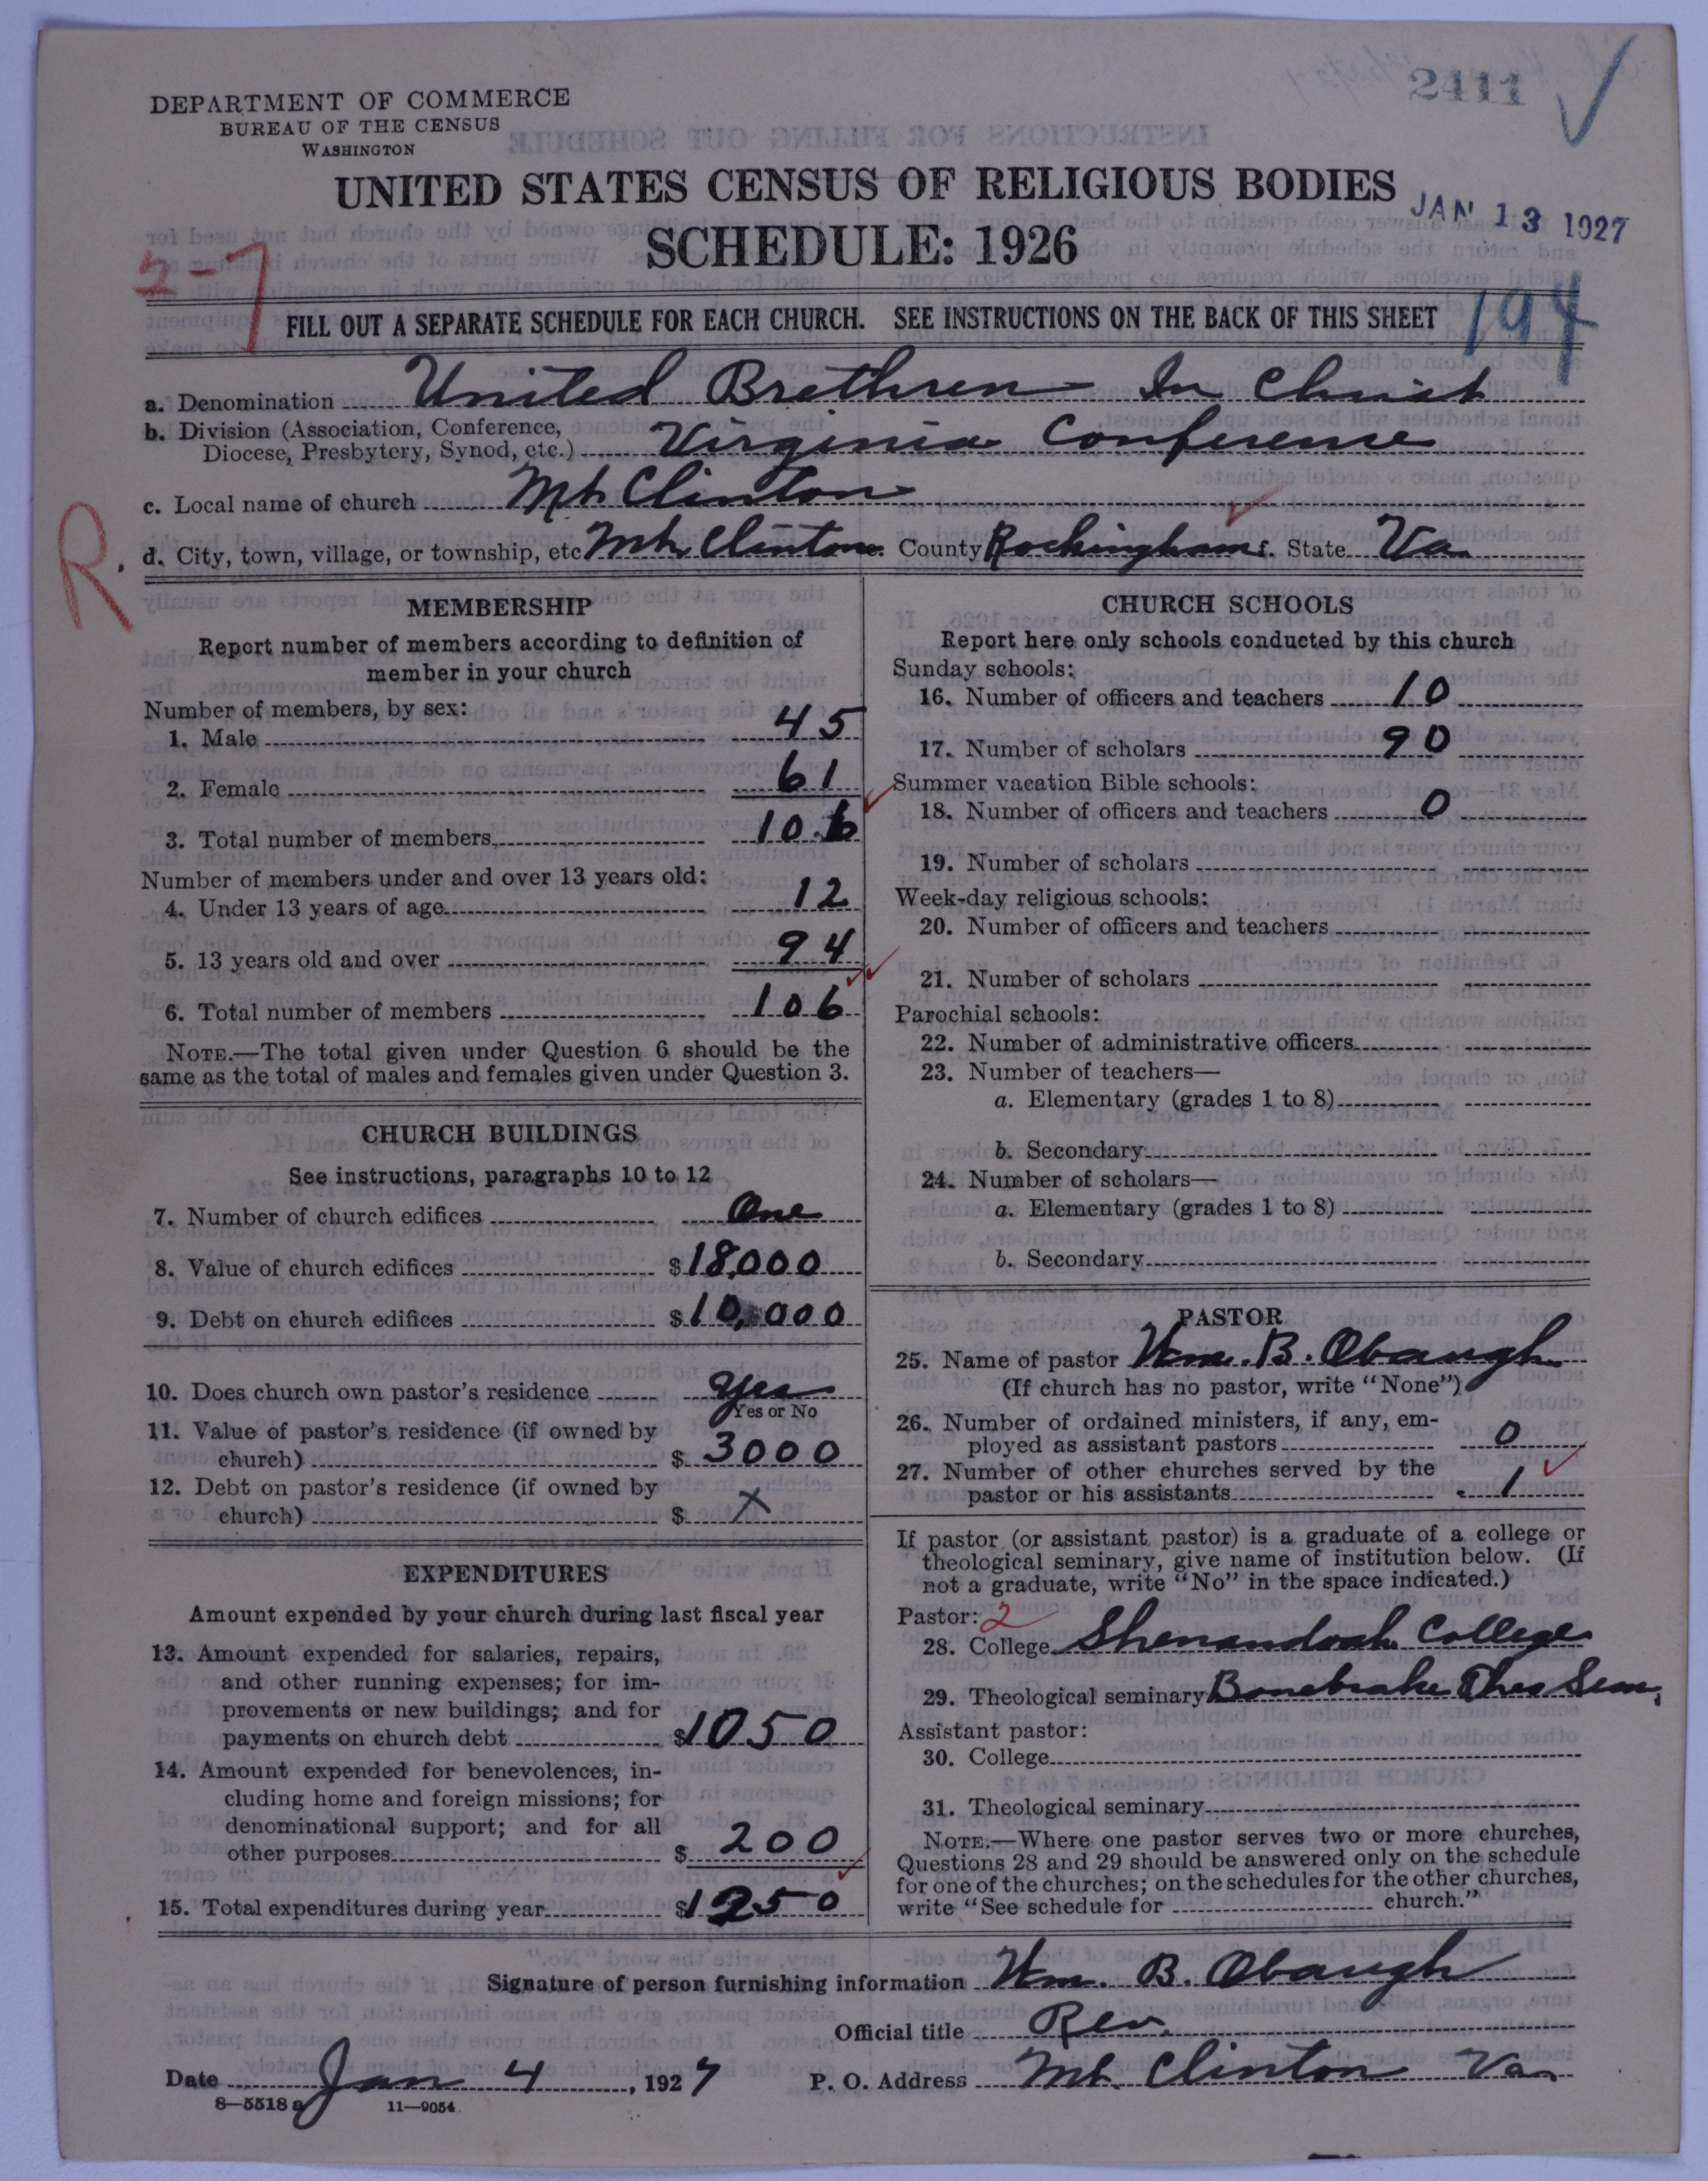 2411
DEPARTMENT OF COMMERCE
BUREAU OF THE CENSUS
WASHINGTON
UNITED STATES CENSUS OF RELIGIOUS BODIES
JAN 13 1927
SCHEDULE: 1926
2-7
194
FILL OUT A SEPARATE SCHEDULE FOR EACH CHURCH. SEE INSTRUCTIONS ON THE BACK OF THIS SHEET
a. Denomination United Brethren In Christ
b. Division (Association, Conference,
Diocese, Presbytery, Synod, etc.) Virginia Conference
c. Local name of church Mt. Clinton
R.
d. City, town, village, or township, etc Mt. Clinton County Rockingham State Va.
MEMBERSHIP
Report number of members according to definition of
member in your church
Number of members, by sex:
1. Male 45
2. Female 61
3. Total number of members 106
Number of members under and over 13 years old:
4. Under 13 years of age 12
5. 13 years old and over 94
6. Total number of members 106
NOTE.—The total given under Question 6 should be the
same as the total of males and females given under Question 3.
CHURCH BUILDINGS
See instructions, paragraphs 10 to 12
7. Number of church edifices One
8. Value of church edifices $18,000
9. Debt on church edifices $10,000
10. Does church own pastor's residence Yes
Yes or No
11. Value of pastor's residence (if owned by
church) $ 3000
12. Debt on pastor's residence (if owned by
church) $ X
EXPENDITURES
Amount expended by your church during last fiscal year
13. Amount expended for salaries, repairs,
and other running expenses; for im-
provements or new buildings; and for
payments on church debt $1050
14. Amount expended for benevolences, in-
cluding home and foreign missions; for
denominational support; and for all
other purposes $ 200
15. Total expenditures during year $1250
CHURCH SCHOOLS
Report here only schools conducted by this church
Sunday schools:
16. Number of officers and teachers 10
17. Number of scholars 90
Summer vacation Bible schools:
18. Number of officers and teachers 0
19. Number of scholars
Week-day religious schools:
20. Number of officers and teachers
21. Number of scholars
Parochial schools:
22. Number of administrative officers
23. Number of teachers—
a. Elementary (grades 1 to 8)
b. Secondary
24. Number of scholars—
a. Elementary (grades 1 to 8)
b. Secondary
PASTOR
25. Name of pastor Wm. B. Obaugh
(If church has no pastor, write "None")
26. Number of ordained ministers, if any, em-
ployed as assistant pastors 0
27. Number of other churches served by the
pastor or his assistants 1
If pastor (or assistant pastor) is a graduate of a college or
theological seminary, give name of institution below. (If
not a graduate, write "No" in the space indicated.)
Pastor: 2
28. College Shenandoah College
29. Theological seminary Bonebrake Theo Sem.
Assistant pastor:
30. College
31. Theological seminary
NOTE.—Where one pastor serves two or more churches,
Questions 28 and 29 should be answered only on the schedule
for one of the churches; on the schedules for the other churches,
write "See schedule for church."
Signature of person furnishing information Wm. B. Obaugh
Official title Rev.
Date Jan 4, 1927 P. O. Address Mt. Clinton Va.
8—5518 a 11—9054